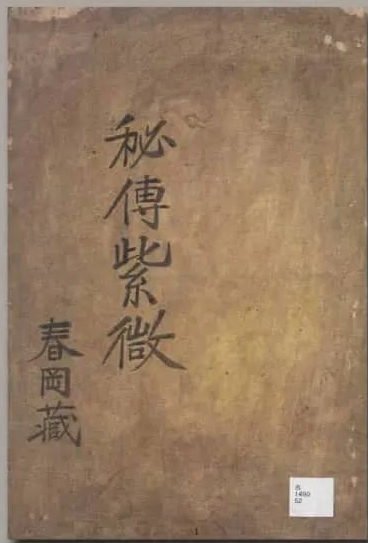 秘傳紫微
春岡藏
1490
52
1